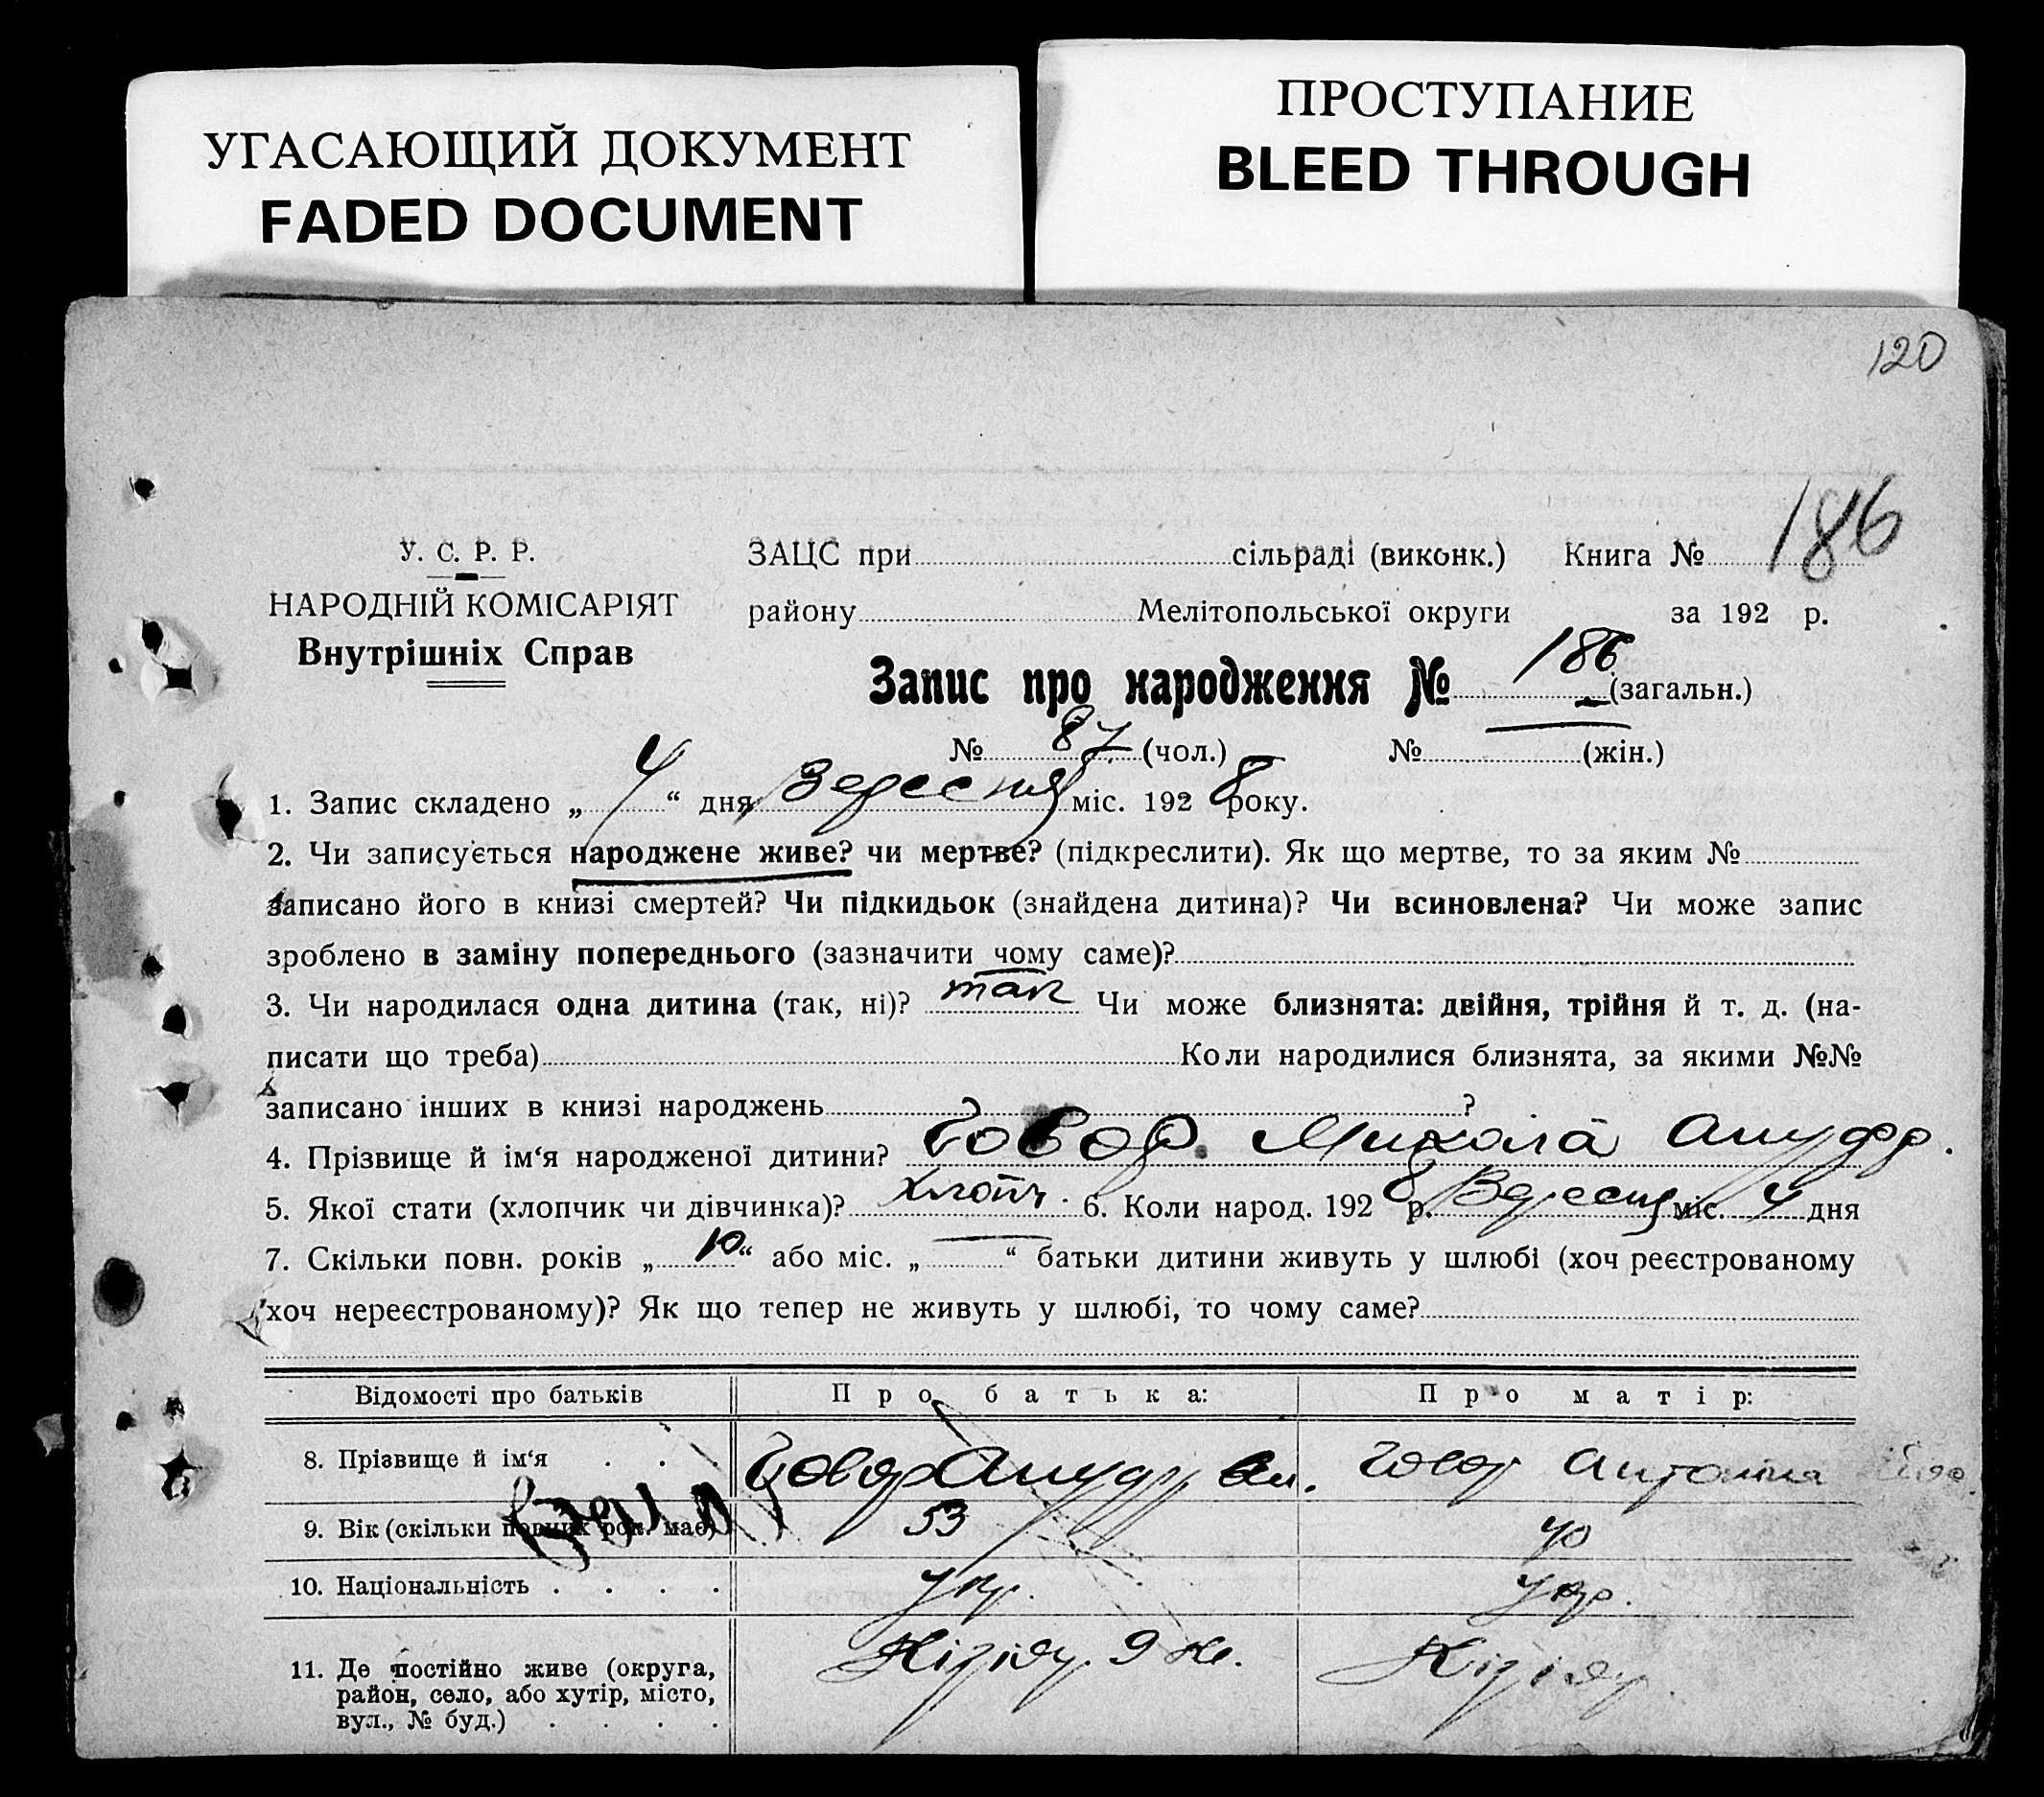 УГАСАЮЩИЙ ДОКУМЕНТ
FADED DOCUMENT
ПРОСТУПАНИЕ
BLEED THROUGH
120
У. С. Р. Р.
НАРОДНІЙ КОМІСАРІЯТ
Внутрішніх Справ
ЗАЦС при сільраді (виконк.) Книга № 186
району Мелітопольської округи за 192 р.
Запис про народження № 186 (загальн.)
№ 87 (чол.) № — (жін.)
1. Запис складено „ 4 “ дня Вересня міс. 1928 року.
2. Чи записується народжене живе? чи мертве? (підкреслити). Як що мертве, то за яким №
записано його в книзі смертей? Чи підкидьок (знайдена дитина)? Чи всиновлена? Чи може запис
зроблено в заміну попереднього (зазначити чому саме)?
3. Чи народилася одна дитина (так, ні)? так Чи може близнята: двійня, трійня й т. д. (на-
писати що треба) Коли народилися близнята, за якими №№
записано інших в книзі народжень ?
4. Прізвище й ім‘я народженої дитини? Говор Микола Ануфр.
5. Якої стати (хлопчик чи дівчинка)? хлопч. 6. Коли народ. 1928 р. Вересня міс. 4 дня
7. Скільки повн. років „ 10 “ або міс. „ — “ батьки дитини живуть у шлюбі (хоч реєстрованому
хоч нереєстрованому)? Як що тепер не живуть у шлюбі, то чому саме?
Відомості про батьків Про батька: Про матір:
8. Прізвище й ім‘я . . . Говор Ануфр. Говор Антоніна
9. Вік (скільки повних рок. має) 53 40
10. Національність . . . . Укр. Укр.
11. Де постійно живе (округа,
район, село, або хутір, місто,
вул., № буд.) . . . .